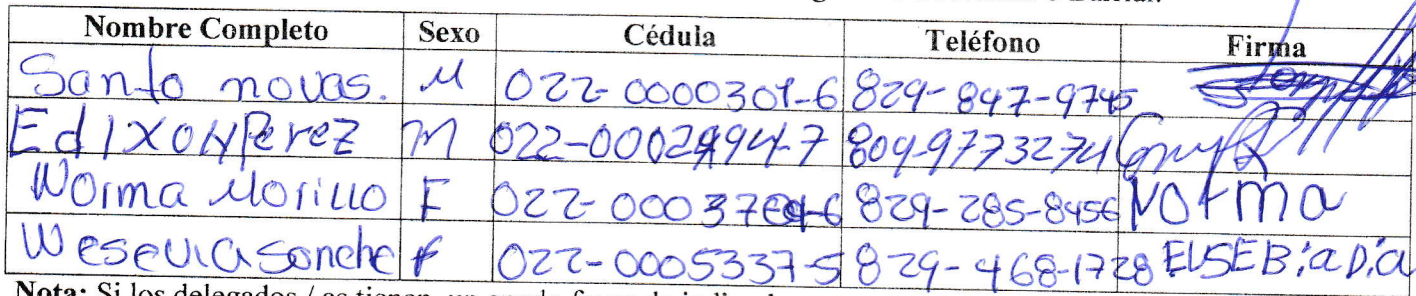 Nombre Completo Sexo Cédula Teléfono Firma
Santo novas. M 022-0000301-6 829-847-9745
Edixon Perez M 022-0002994-7 809-9773274
Norma Morillo F 829-285-8456 Norma
F 022-0005337-5 829-468-1728 EUSEBia Dia
Nota: Si los delegados / as tienen